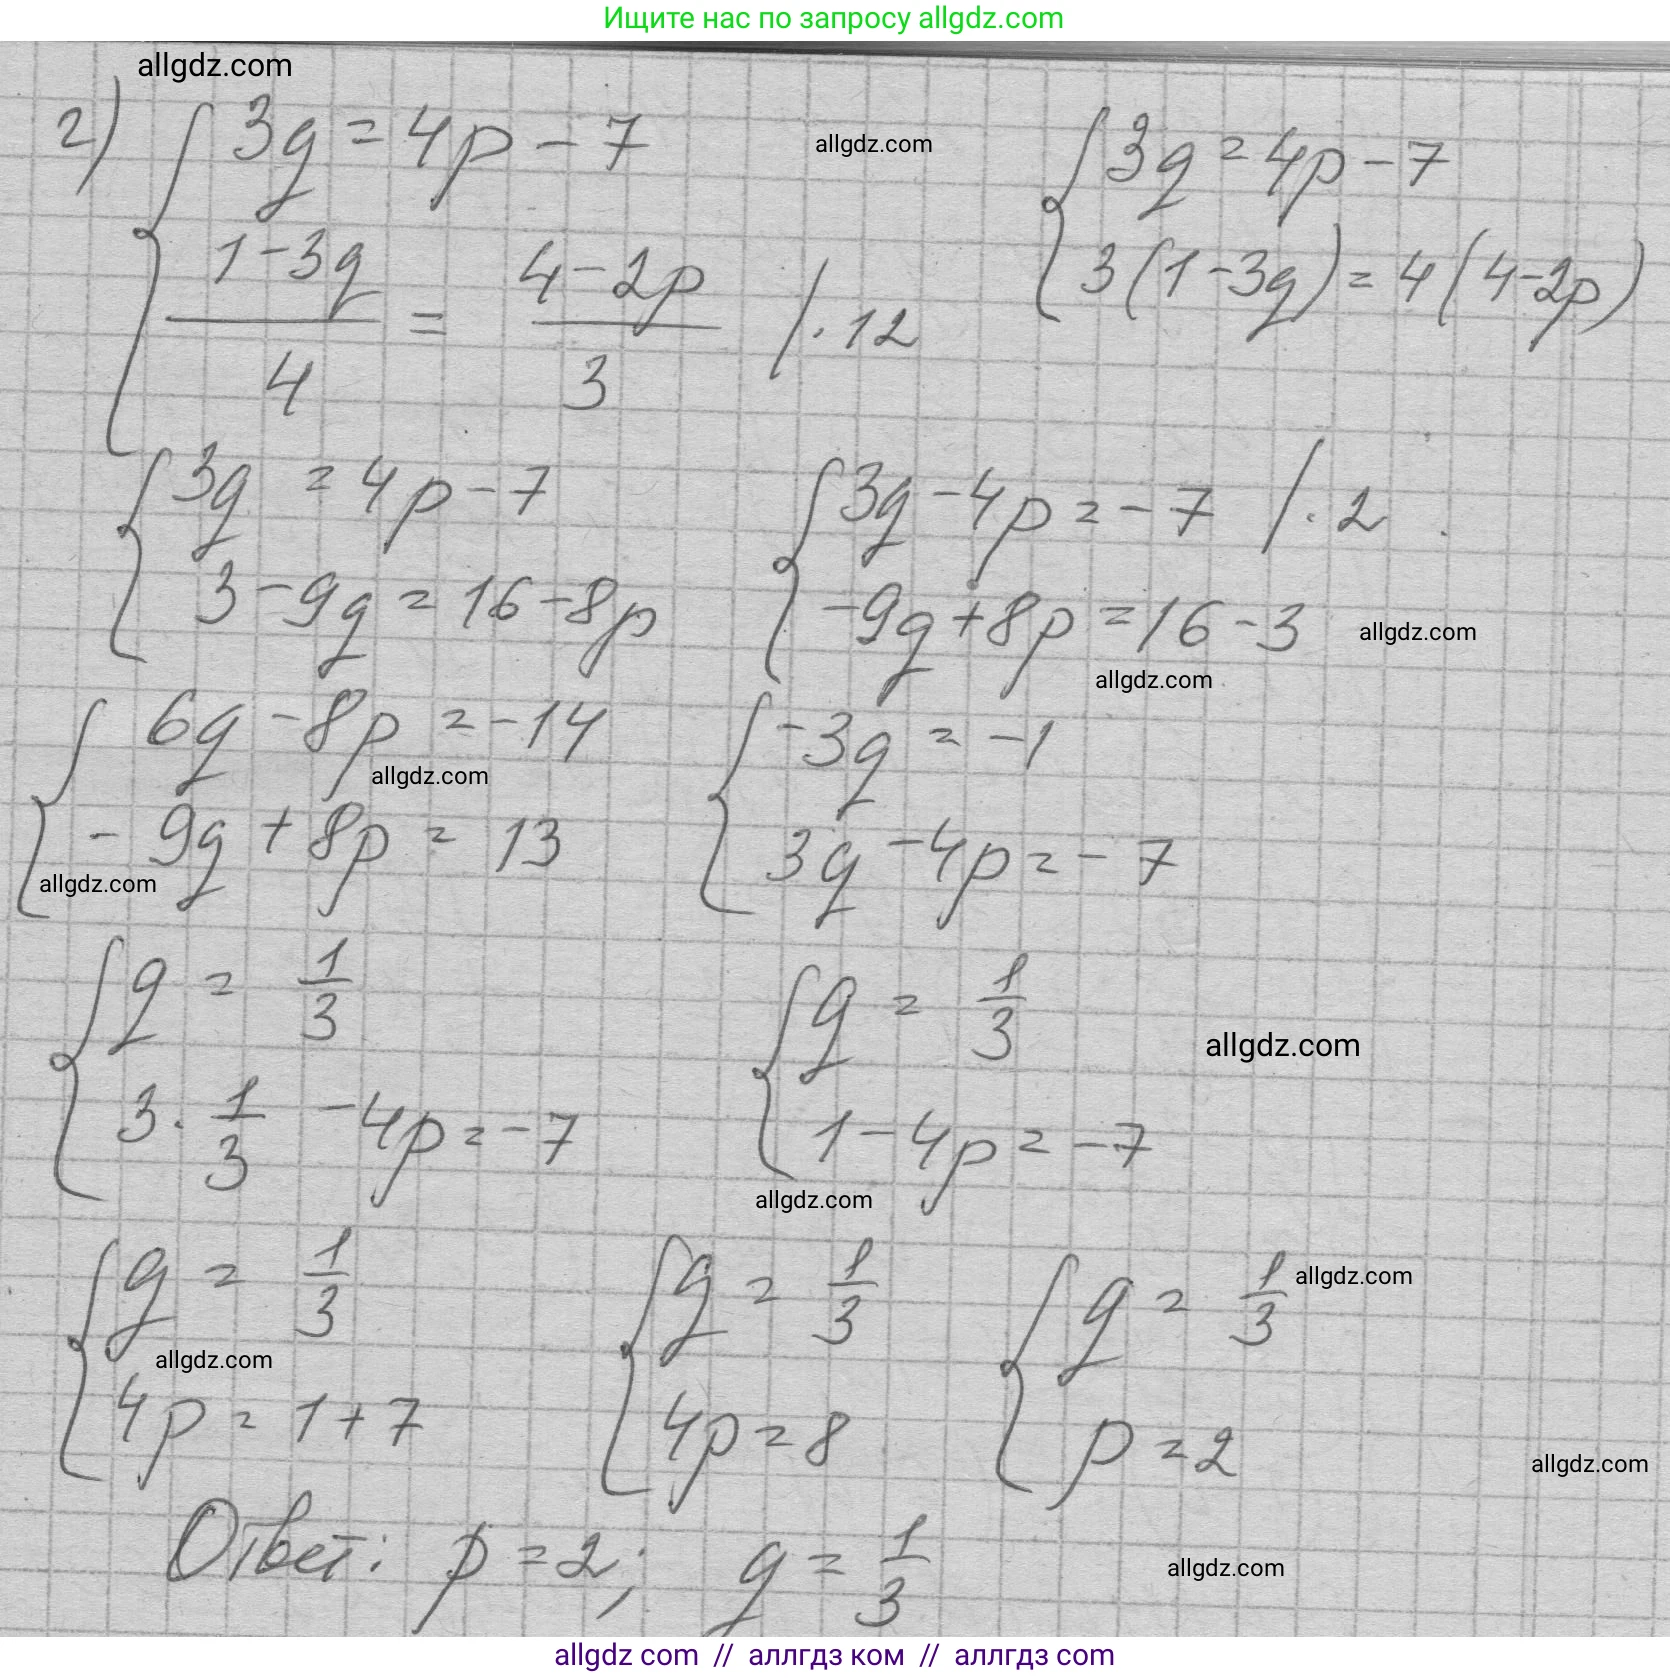 Ищите нас по запросу allgdz.com
allgdz.com
2) { 3q = 4p - 7
1 - 3q / 4 = 4 - 2p / 3 / · 12
allgdz.com
{ 3q = 4p - 7
3(1 - 3q) = 4(4 - 2p)
{ 3q = 4p - 7
3 - 9q = 16 - 8p
{ 3q - 4p = -7 / · 2
-9q + 8p = 16 - 3
allgdz.com
allgdz.com
{ 6q - 8p = -14
allgdz.com
-9q + 8p = 13
allgdz.com
{ -3q = -1
3q - 4p = -7
{ q = 1/3
3 · 1/3 - 4p = -7
{ q = 1/3
1 - 4p = -7
allgdz.com
allgdz.com
{ q = 1/3
allgdz.com
4p = 1 + 7
{ q = 1/3
4p = 8
{ q = 1/3
allgdz.com
p = 2
allgdz.com
Ответ: p = 2; q = 1/3
allgdz.com
allgdz com // аллгдз ком // аллгдз com